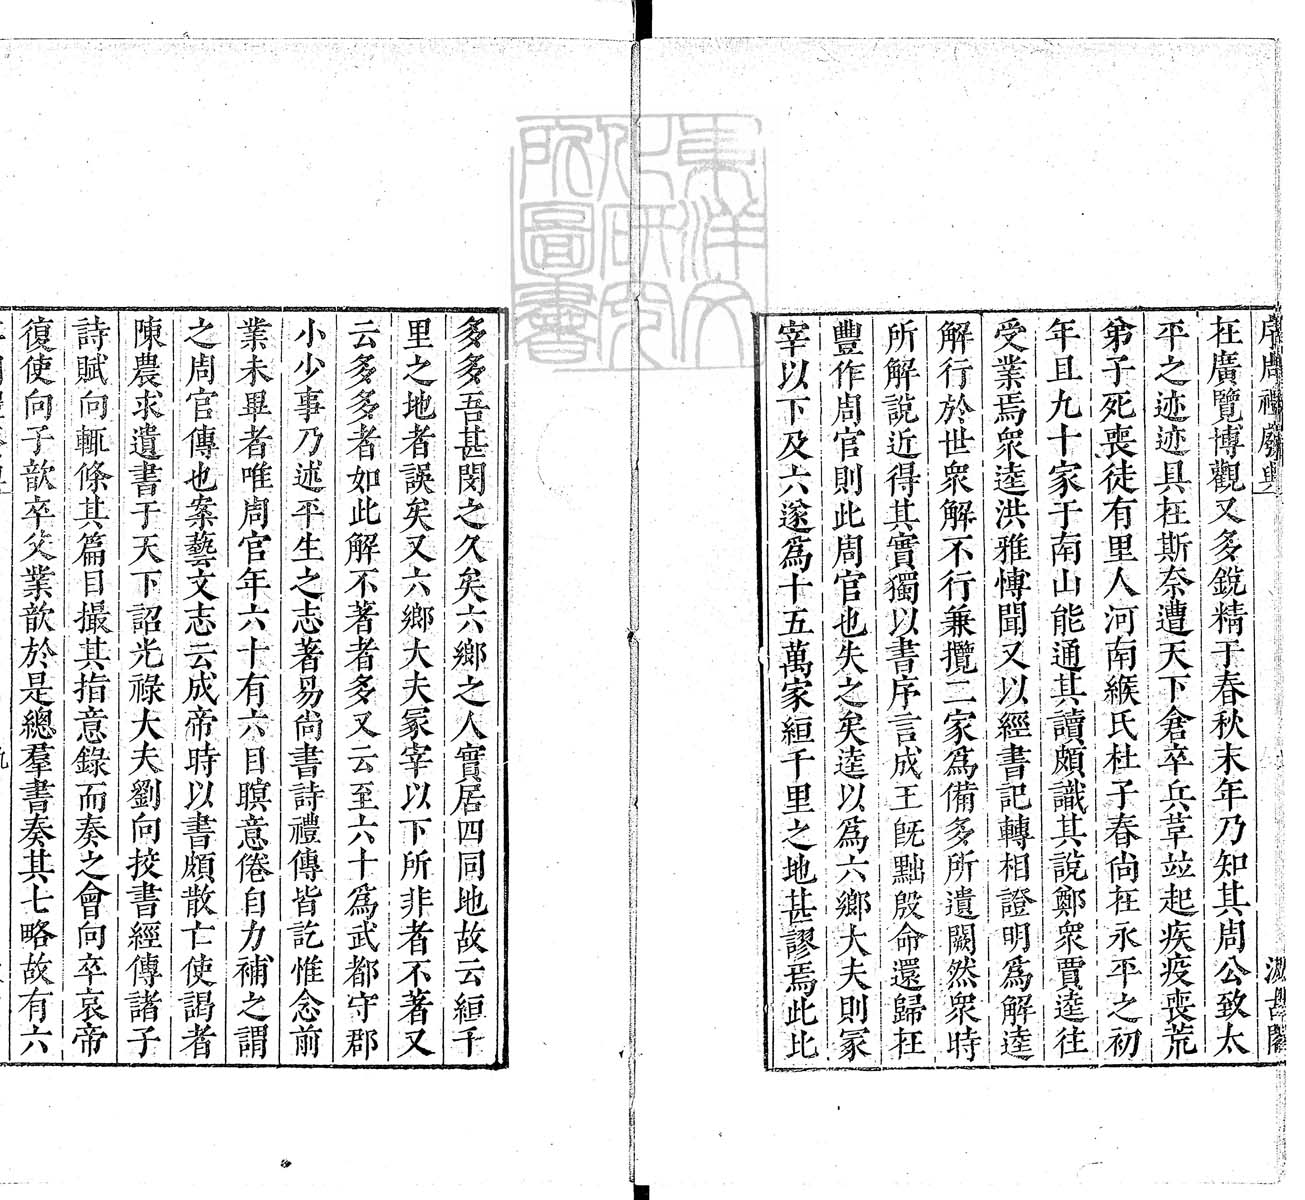 序周禮廢興
汲古閣
在廣覽博觀又多銳精于春秋末年乃知其周公致太
平之迹迹具在斯奈遭天下倉卒兵革並起疾疫喪荒
弟子死喪徒有里人河南緱氏杜子春尚在永平之初
年且九十家于南山能通其讀頗識其說鄭眾賈逵往
受業焉眾逵洪雅博聞又以經書記轉相證明爲解逵
解行於世眾解不行兼攬二家爲備多所遺闕然眾時
所解說近得其實獨以書序言成王旣黜殷命還歸在
豐作周官則此周官也失之矣逵以爲六鄉大夫則冢
宰以下及六遂爲十五萬家絙千里之地甚謬焉此比
多多吾甚閔之久矣六鄉之人實居四同地故云絙千
里之地者誤矣又六鄉大夫冢宰以下所非者不著又
云多多多者如此解不著者多又云至六十爲武都守郡
小少事乃述平生之志著易尚書詩禮傳皆訖惟念前
業未畢者唯周官年六十有六目瞑意倦自力補之謂
之周官傳也案藝文志云成帝時以書頗散亡使謁者
陳農求遺書于天下詔光祿大夫劉向挍書經傳諸子
詩賦向輒條其篇目撮其指意錄而奏之會向卒哀帝
復使向子歆卒父業歆於是總羣書奏其七略故有六
九
東洋文化研究所圖書